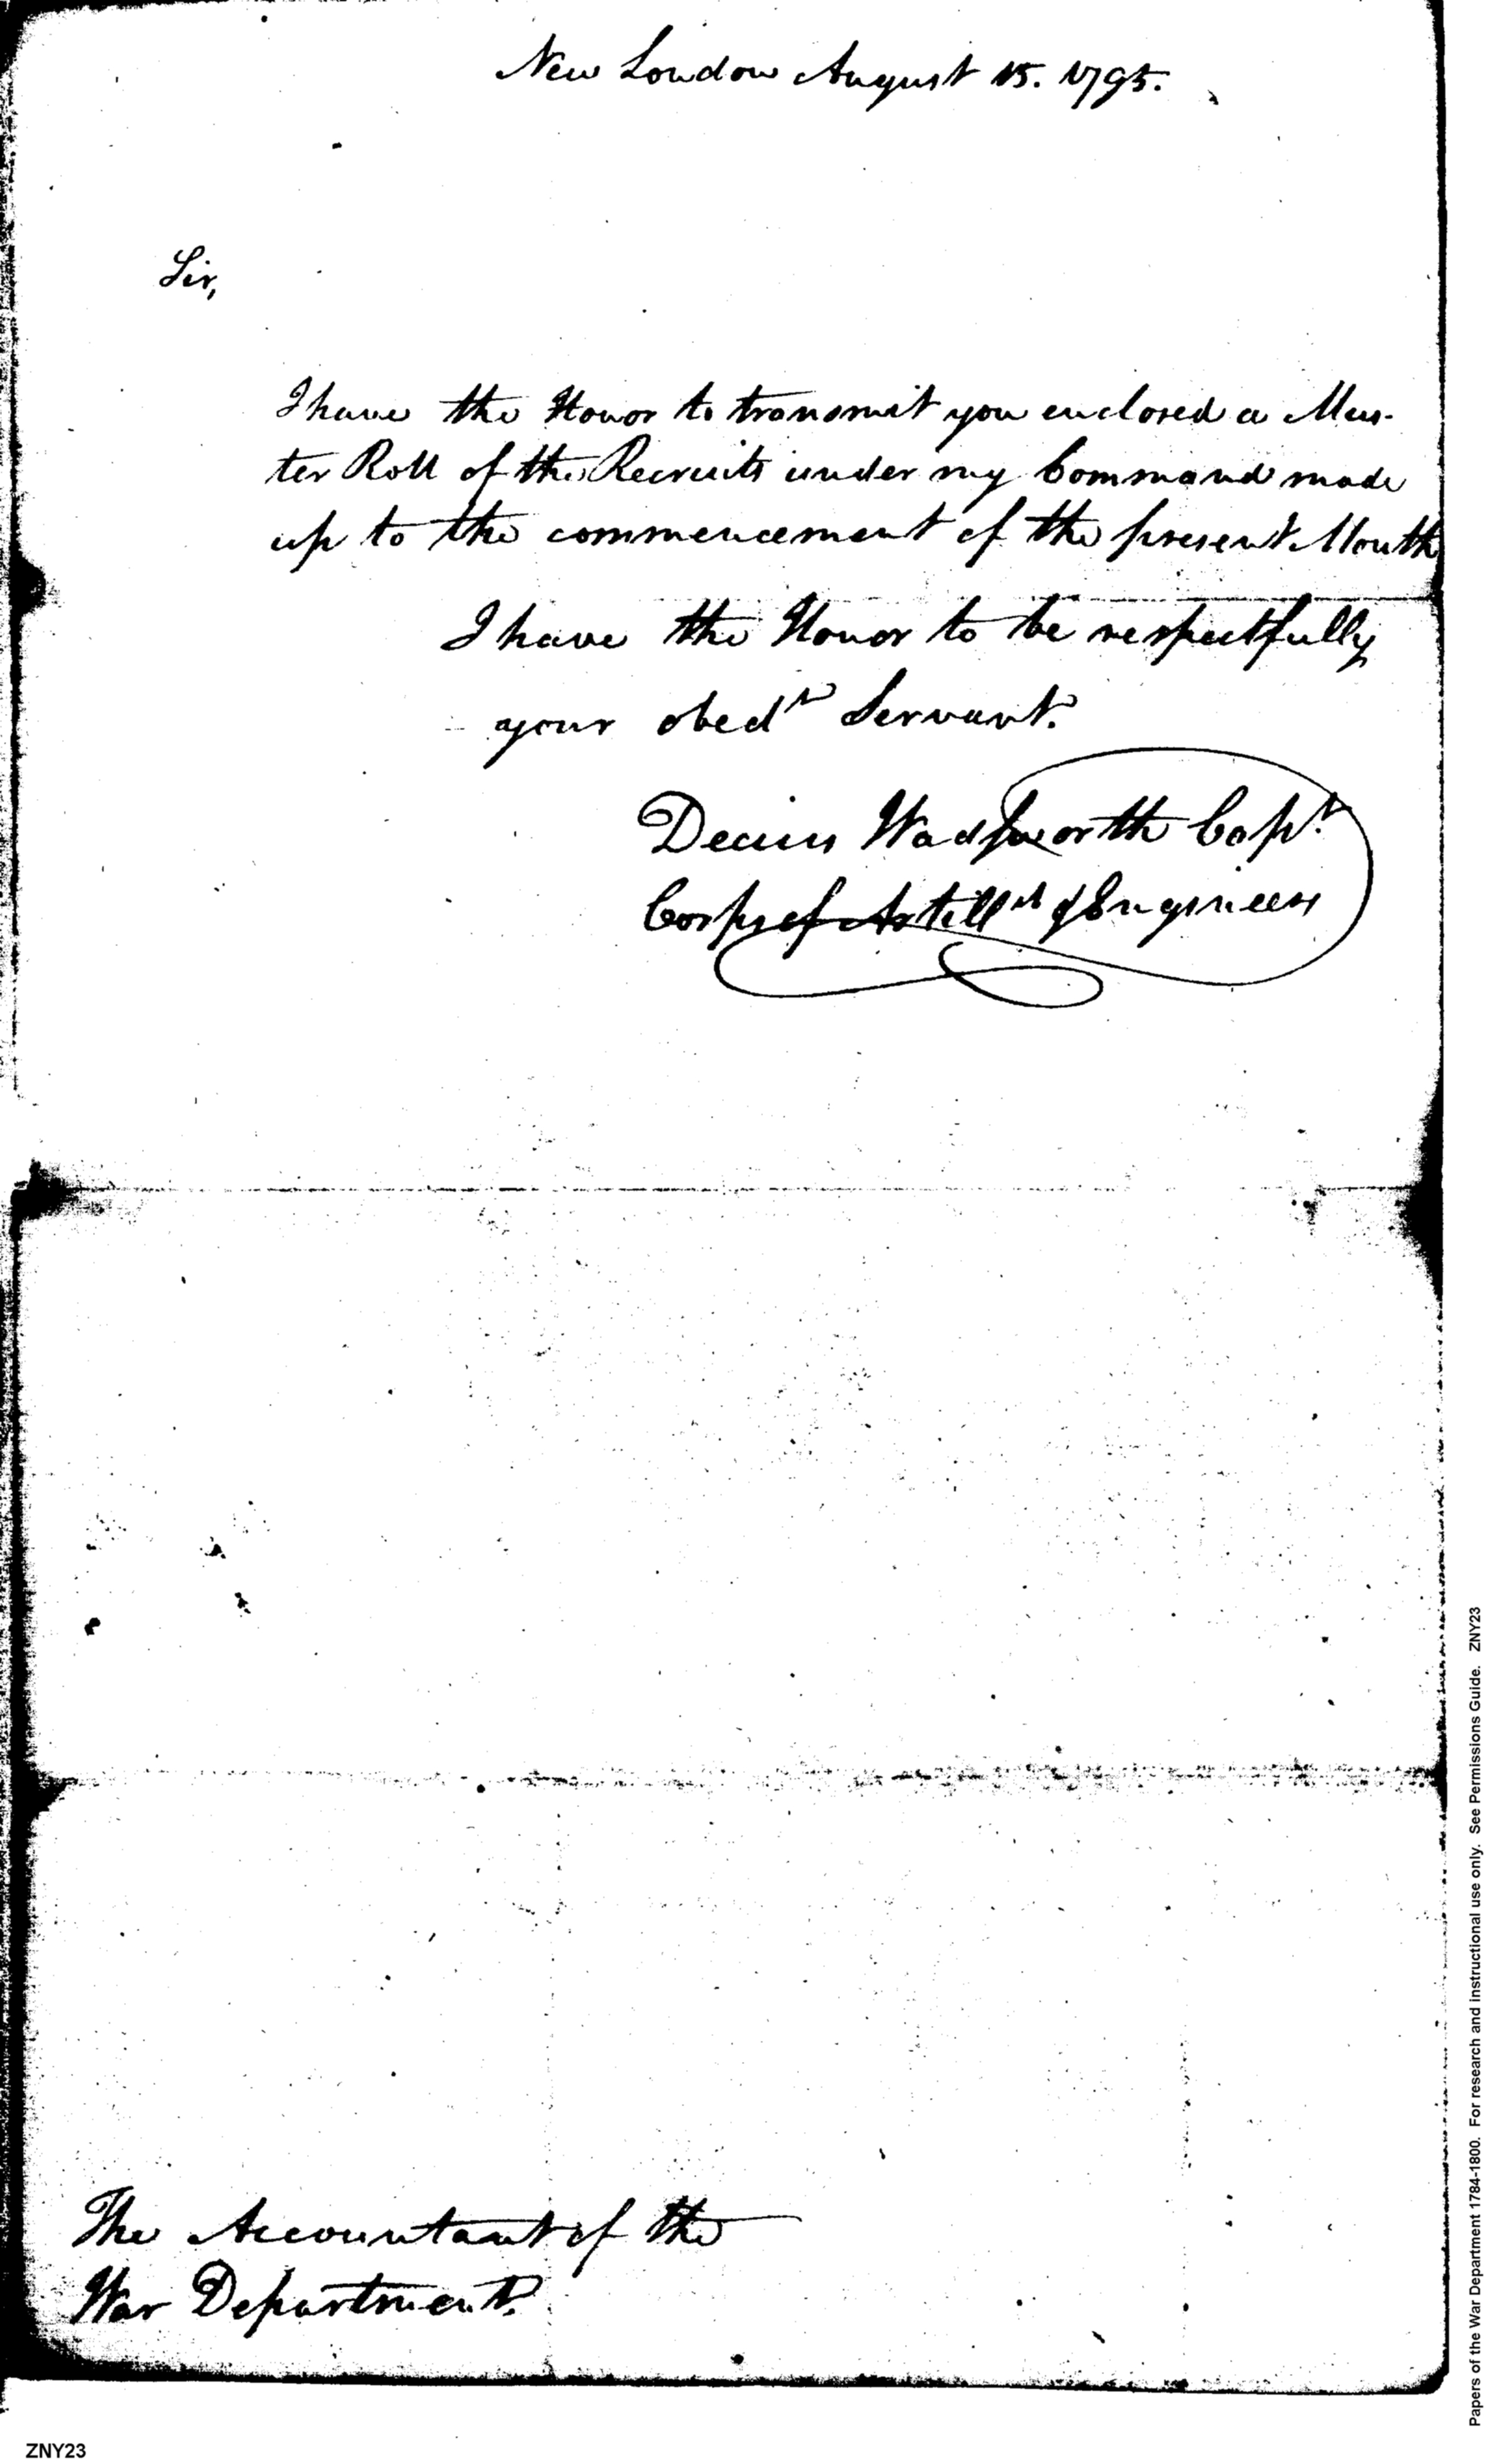 New London August 15. 1795.
Sir,
I have the Honor to transmit you enclosed a Mus-
ter Roll of the Recruits under my Command made
up to the commencement of the present Month
I have the Honor to be respectfully
your obedt Servant.
Decius Wadsworth Capt.
Corps of Artillts & Engineers
The Accountant of the
War Department.
Papers of the War Department 1784-1800. For research and instructional use only. See Permissions Guide. ZNY23
ZNY23